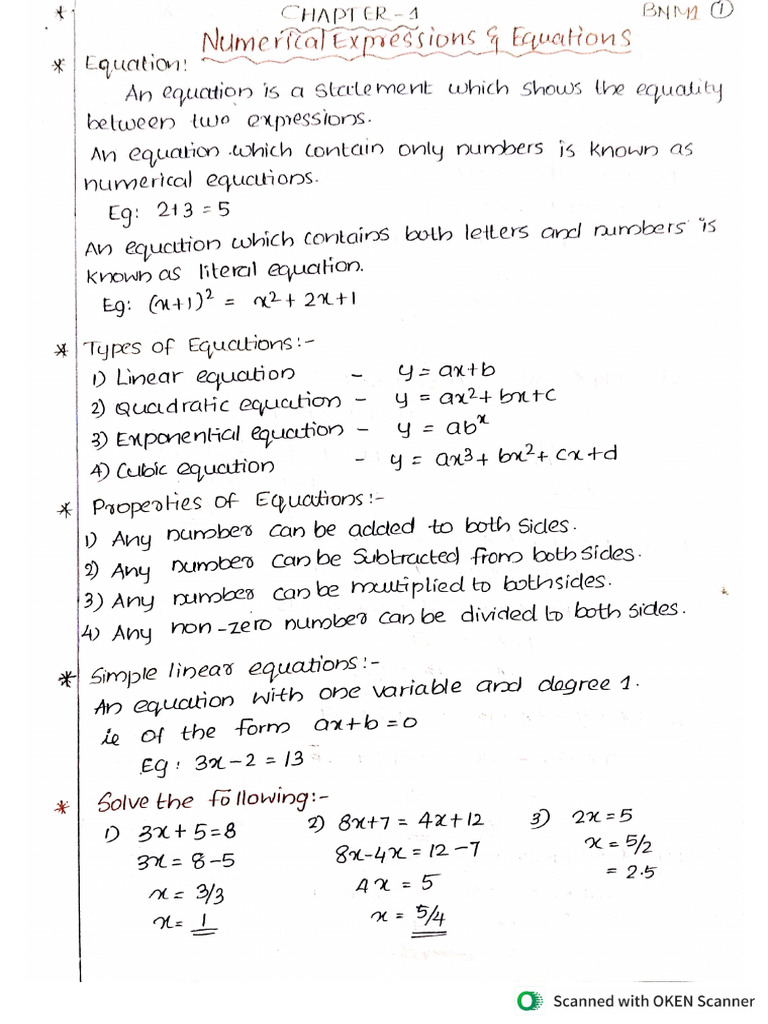 * CHAPTER-1 BNM1 ①
Numerical Expressions & Equations
* Equation:
An equation is a statement which shows the equality
between two expressions.
An equation which contain only numbers is known as
numerical equations.
Eg: 2+3 = 5
An equation which contains both letters and numbers is
known as literal equation.
Eg: (x+1)² = x² + 2x+1
* Types of Equations:-
1) Linear equation - y = ax+b
2) Quadratic equation - y = ax²+bx+c
3) Exponential equation - y = abˣ
4) Cubic equation - y = ax³+bx²+cx+d
* Properties of Equations:-
1) Any number can be added to both sides.
2) Any number can be subtracted from both sides.
3) Any number can be multiplied to bothsides.
4) Any non-zero number can be divided to both sides.
* Simple linear equations:-
An equation with one variable and degree 1.
ie of the form ax+b=0
Eg: 3x-2=13
* Solve the following:-
1) 3x+5=8
3x=8-5
x=3/3
x=1
2) 8x+7 = 4x+12
8x-4x=12-7
4x=5
x=5/4
3) 2x=5
x=5/2
=2.5
Scanned with OKEN Scanner